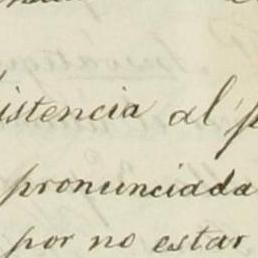 istencia al p
pronunciada
por no estar